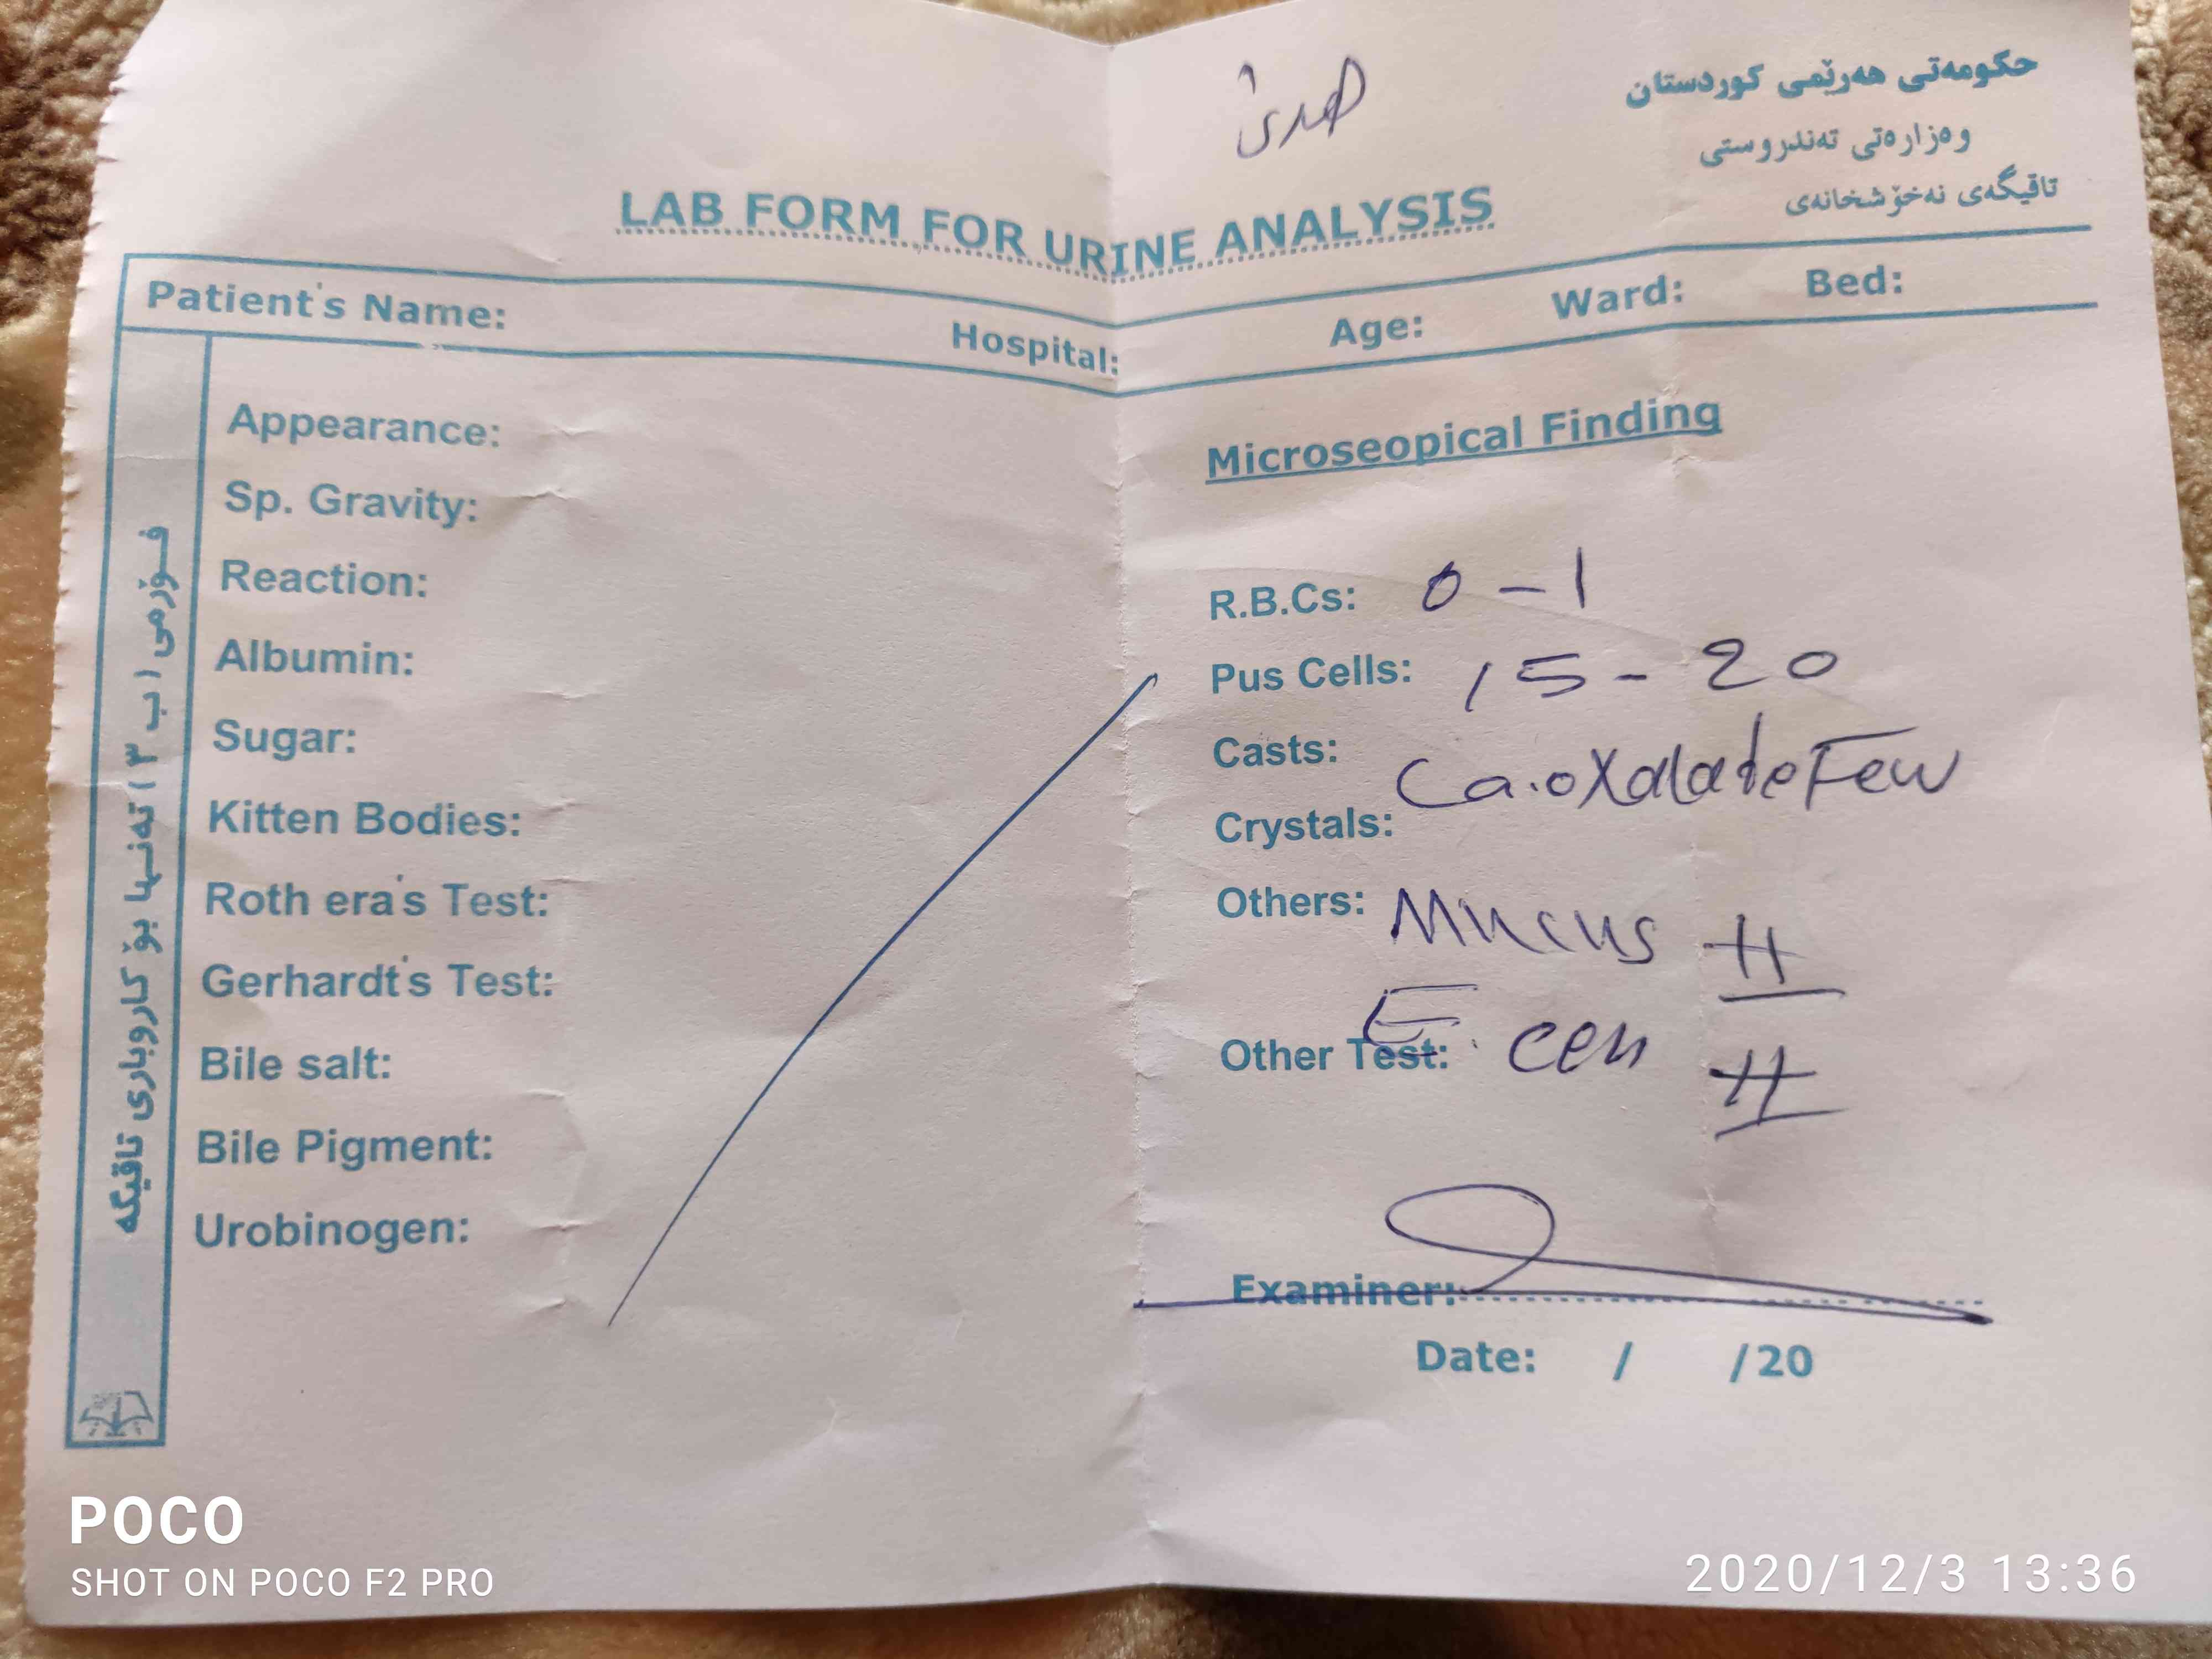 هدى
حكومەتی هەرێمی كوردستان
وەزارەتی تەندروستی
تاقیگەی نەخۆشخانەی
LAB FORM FOR URINE ANALYSIS
Patient's Name: Hospital: Age: Ward: Bed:
فـۆرمی ( ب ٣ ) تەنـها بۆ كاروباری تاقیگە
Appearance:
Sp. Gravity:
Reaction:
Albumin:
Sugar:
Kitten Bodies:
Roth era's Test:
Gerhardt's Test:
Bile salt:
Bile Pigment:
Urobinogen:
Microseopical Finding
R.B.Cs: 0 - 1
Pus Cells: 15 - 20
Casts:
Ca.oxalate Few
Crystals:
Others: Mucus ++
Other Test: E. cell ++
Examiner:
Date: / /20
POCO
SHOT ON POCO F2 PRO
2020/12/3 13:36